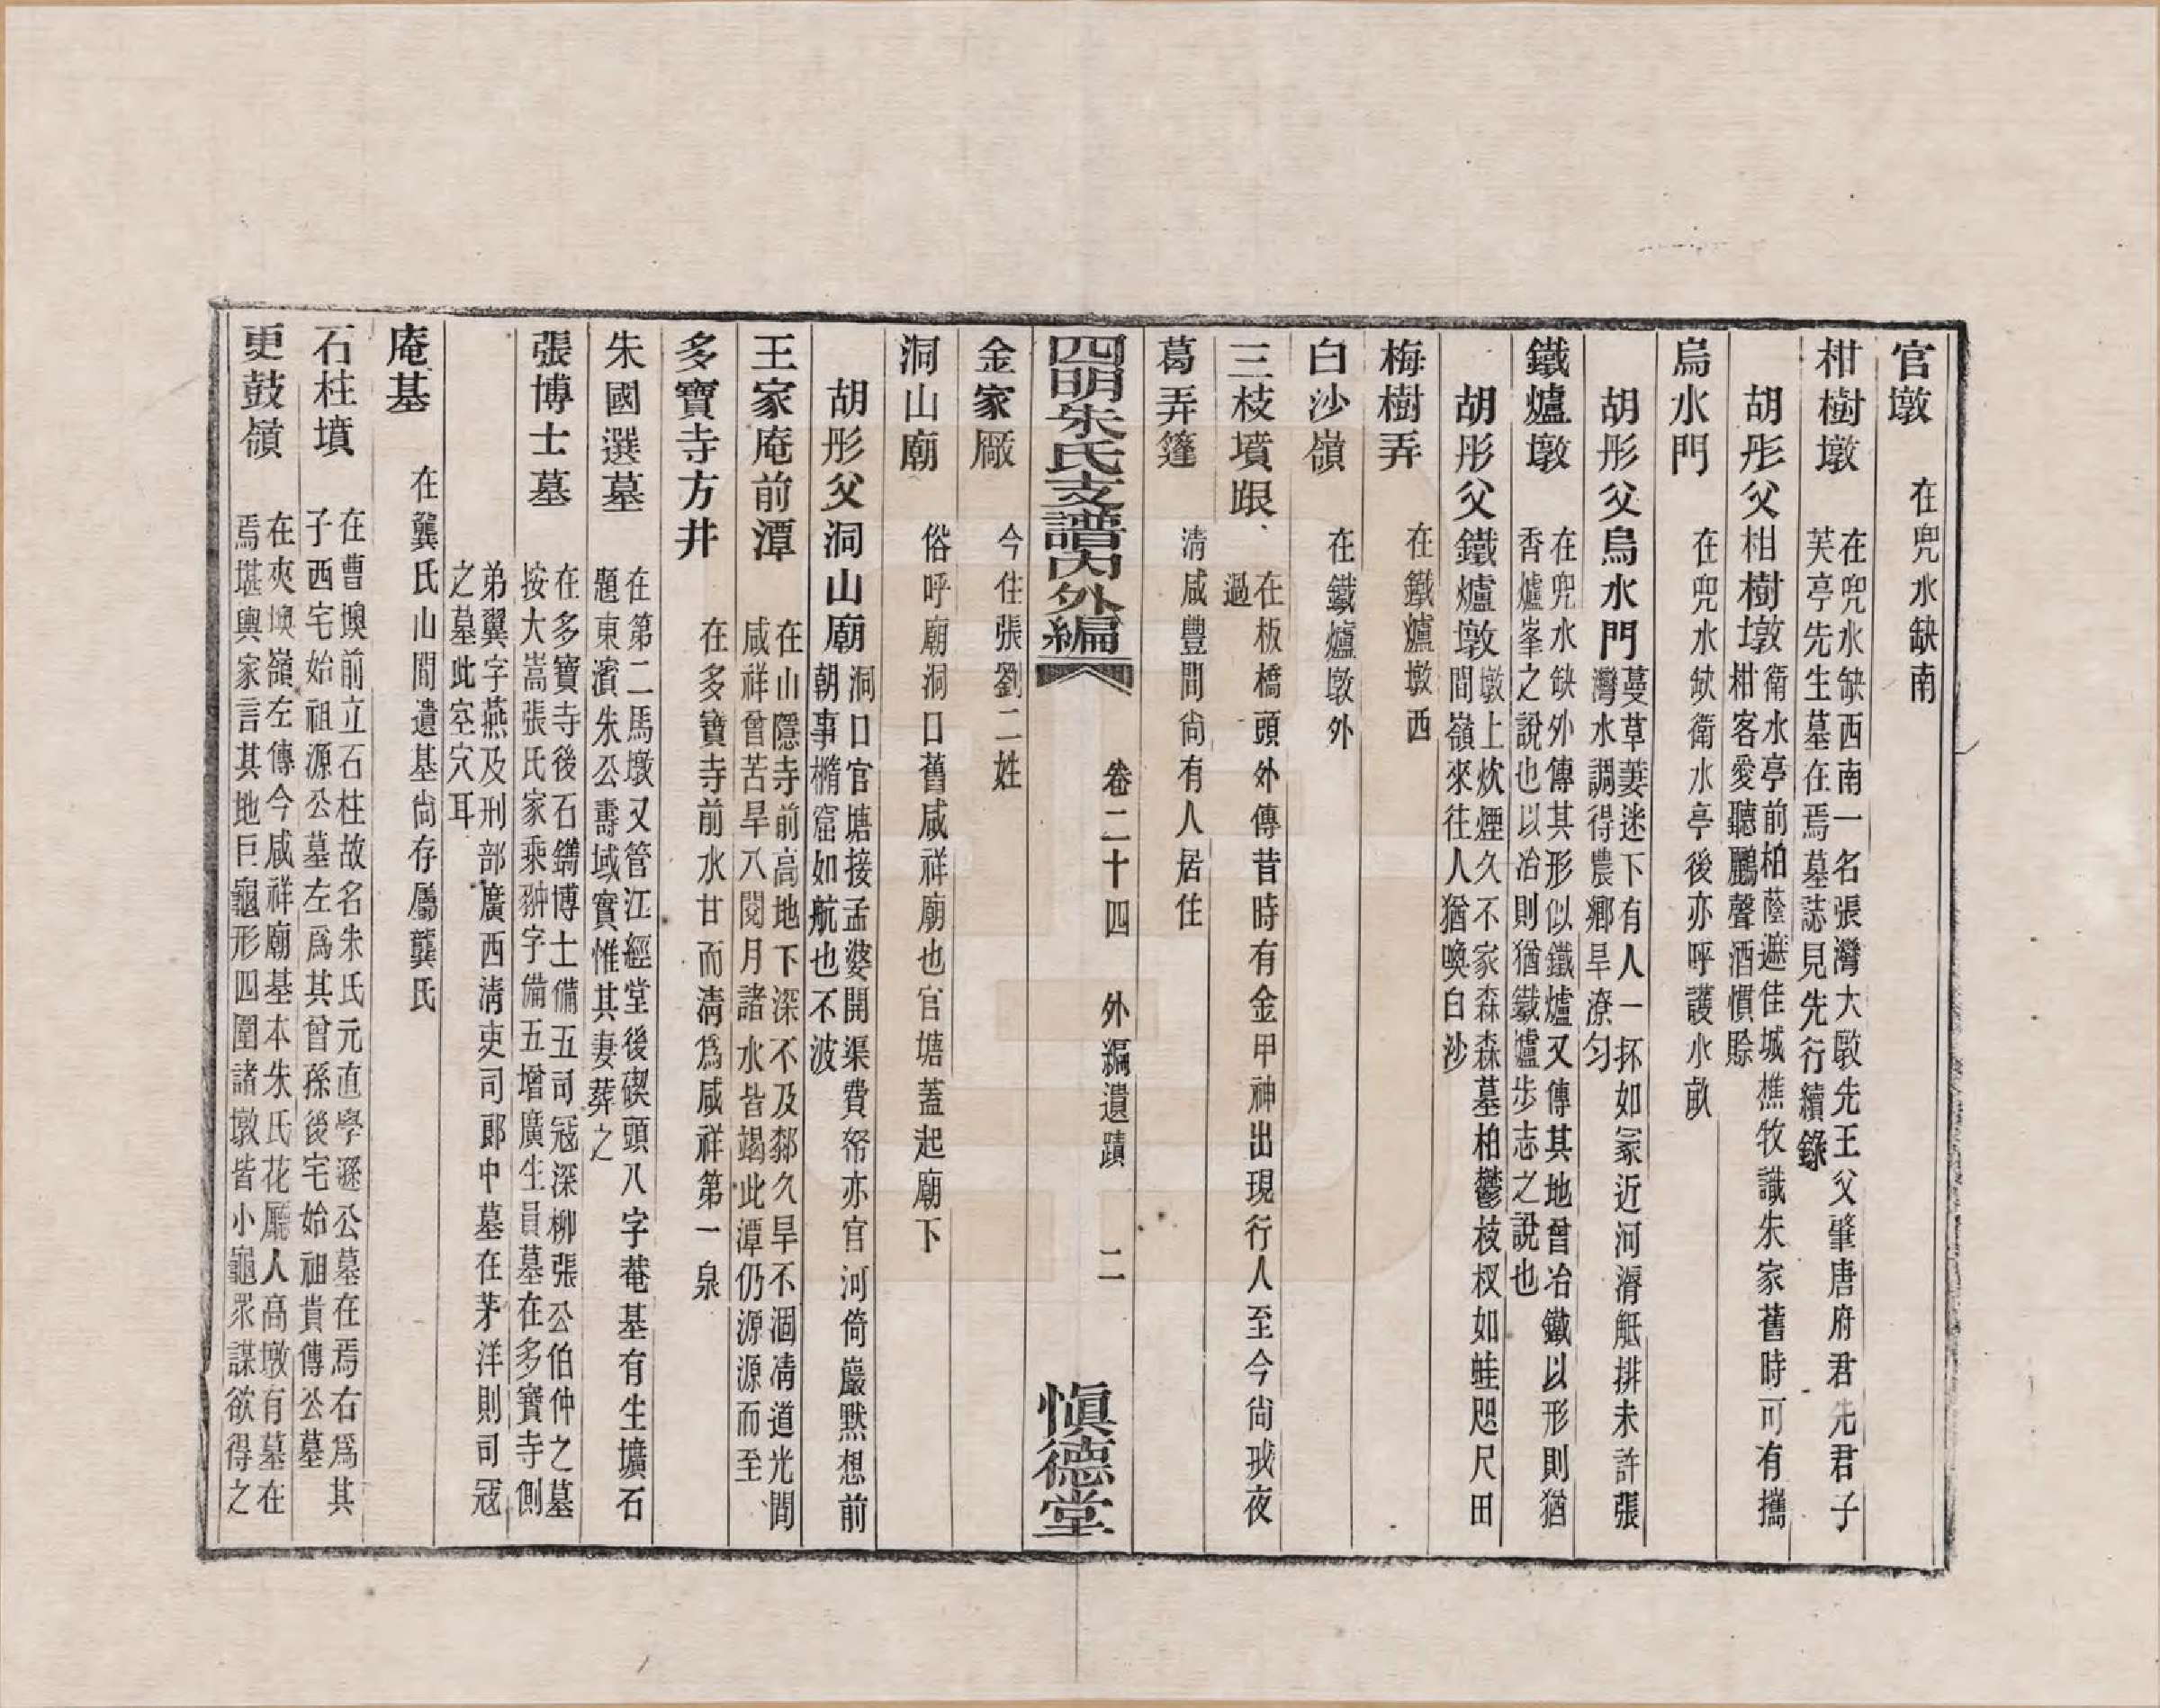 官墩　在兜水缺南
柑樹墩　在兜水缺西南一名張灣大墩先王父肇唐府君先君子
芙亭先生墓在焉墓誌見先行續錄
胡彤父柑樹墩　衛水亭前柏蔭遮佳城樵牧識朱家舊時可有攜
柑客愛聽鸝聲酒慣賒
烏水門　在兜水缺衛水亭後亦呼護水畝
胡彤父烏水門　蔓草萋迷下有人一抔如冢近河漘觝排未許張
灣水調得農鄉旱潦勻
鐵爐墩　在兜水缺外傳其形似鐵爐又傳其地曾冶鐵以形則猶
香爐峯之說也以冶則猶鐵爐步志之說也
胡彤父鐵爐墩　墩上炊煙久不家森森墓柏鬱枝杈如蛙咫尺田
間嶺來往人猶喚白沙
梅樹弄　在鐵爐墩西
白沙嶺　在鐵爐墩外
三枝墳跟　在板橋頭外傳昔時有金甲神出現行人至今尚戒夜
過
葛弄篷　清咸豐間尚有人居住
四明朱氏支譜內外編　卷二十四　外編遺蹟　二　慎德堂
金家廠　今住張劉二姓
洞山廟　俗呼廟洞口舊咸祥廟也官塘蓋起廟下
胡彤父洞山廟　洞口官塘接孟婆開渠費帑亦官河倚巖默想前
朝事橢窟如航也不波
王家庵前潭　在山隱寺前高地下深不及鄰久旱不涸清道光間
咸祥曾苦旱八閱月諸水皆竭此潭仍源源而至
多寶寺方井　在多寶寺前水甘而清爲咸祥第一泉
朱國選墓　在第二馬墩又管江經堂後碶頭八字菴基有生壙石
題東濱朱公壽域實惟其妻葬之
張博士墓　在多寶寺後石鐫博士備五司冦深柳張公伯仲之墓
按大嵩張氏家乘翀字備五增廣生員墓在多寶寺側
弟翼字燕及刑部廣西清吏司郞中墓在茅洋則司冦
之墓此空穴耳
庵基　在龔氏山間遺基尚存屬龔氏
石柱墳　在曹墺前立石柱故名朱氏元直學遜公墓在焉右爲其
子西宅始祖源公墓左爲其曾孫後宅始祖貴傳公墓
更鼓嶺　在夾墺嶺左傳今咸祥廟基本朱氏花廳人高墩有墓在
焉堪輿家言其地巨龜形四圍諸墩皆小龜眾謀欲得之